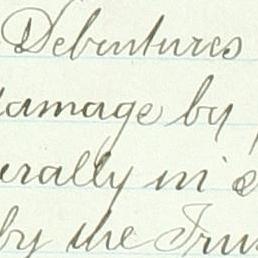 Debentures
damage by
erally in
by the Trus